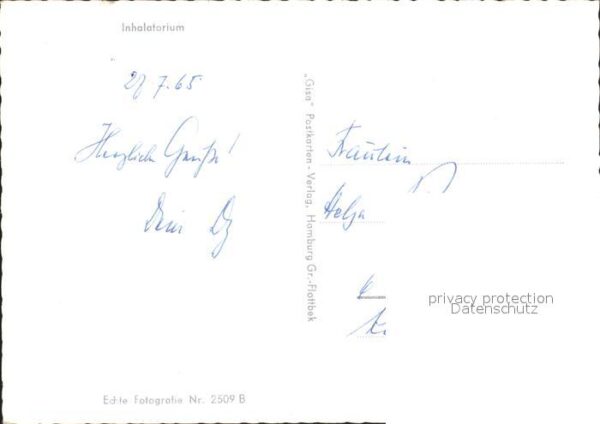 Inhalatorium
27.7.65
Herzliche Grüße!
Dein
"Gisa" Postkarten-Verlag, Hamburg Gr.-Flottbek
Fräulein
Helga
privacy protection
Datenschutz
Echte Fotografie Nr. 2509 B